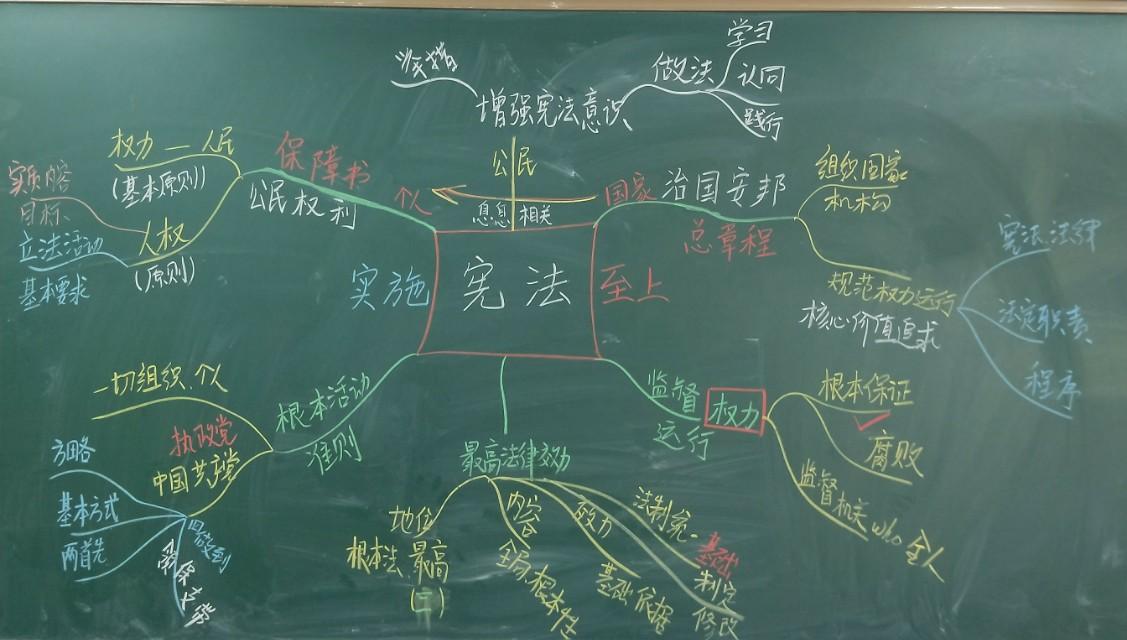 学习
做法
认同
践行
增强宪法意识
公民
权力 — 人民
(基本原则)
保障书
公民权利
个人
息息相关
国家
治国安邦
总章程
组织国家
机构
目标
立法活动
基本要求
人权
(原则)
实施
宪法
至上
规范权力运行
核心价值追求
宪法法律
法定职责
程序
一切组织、个人
根本活动
准则
执政党
中国共产党
方略
基本方式
两首先
监督
权力
运行
根本保证
腐败
监督机关 who 全人
最高法律效力
地位
根本法 最高
(二)
内容
全局根本性
效力
基础 依据
法制统一
基础
制定
修改